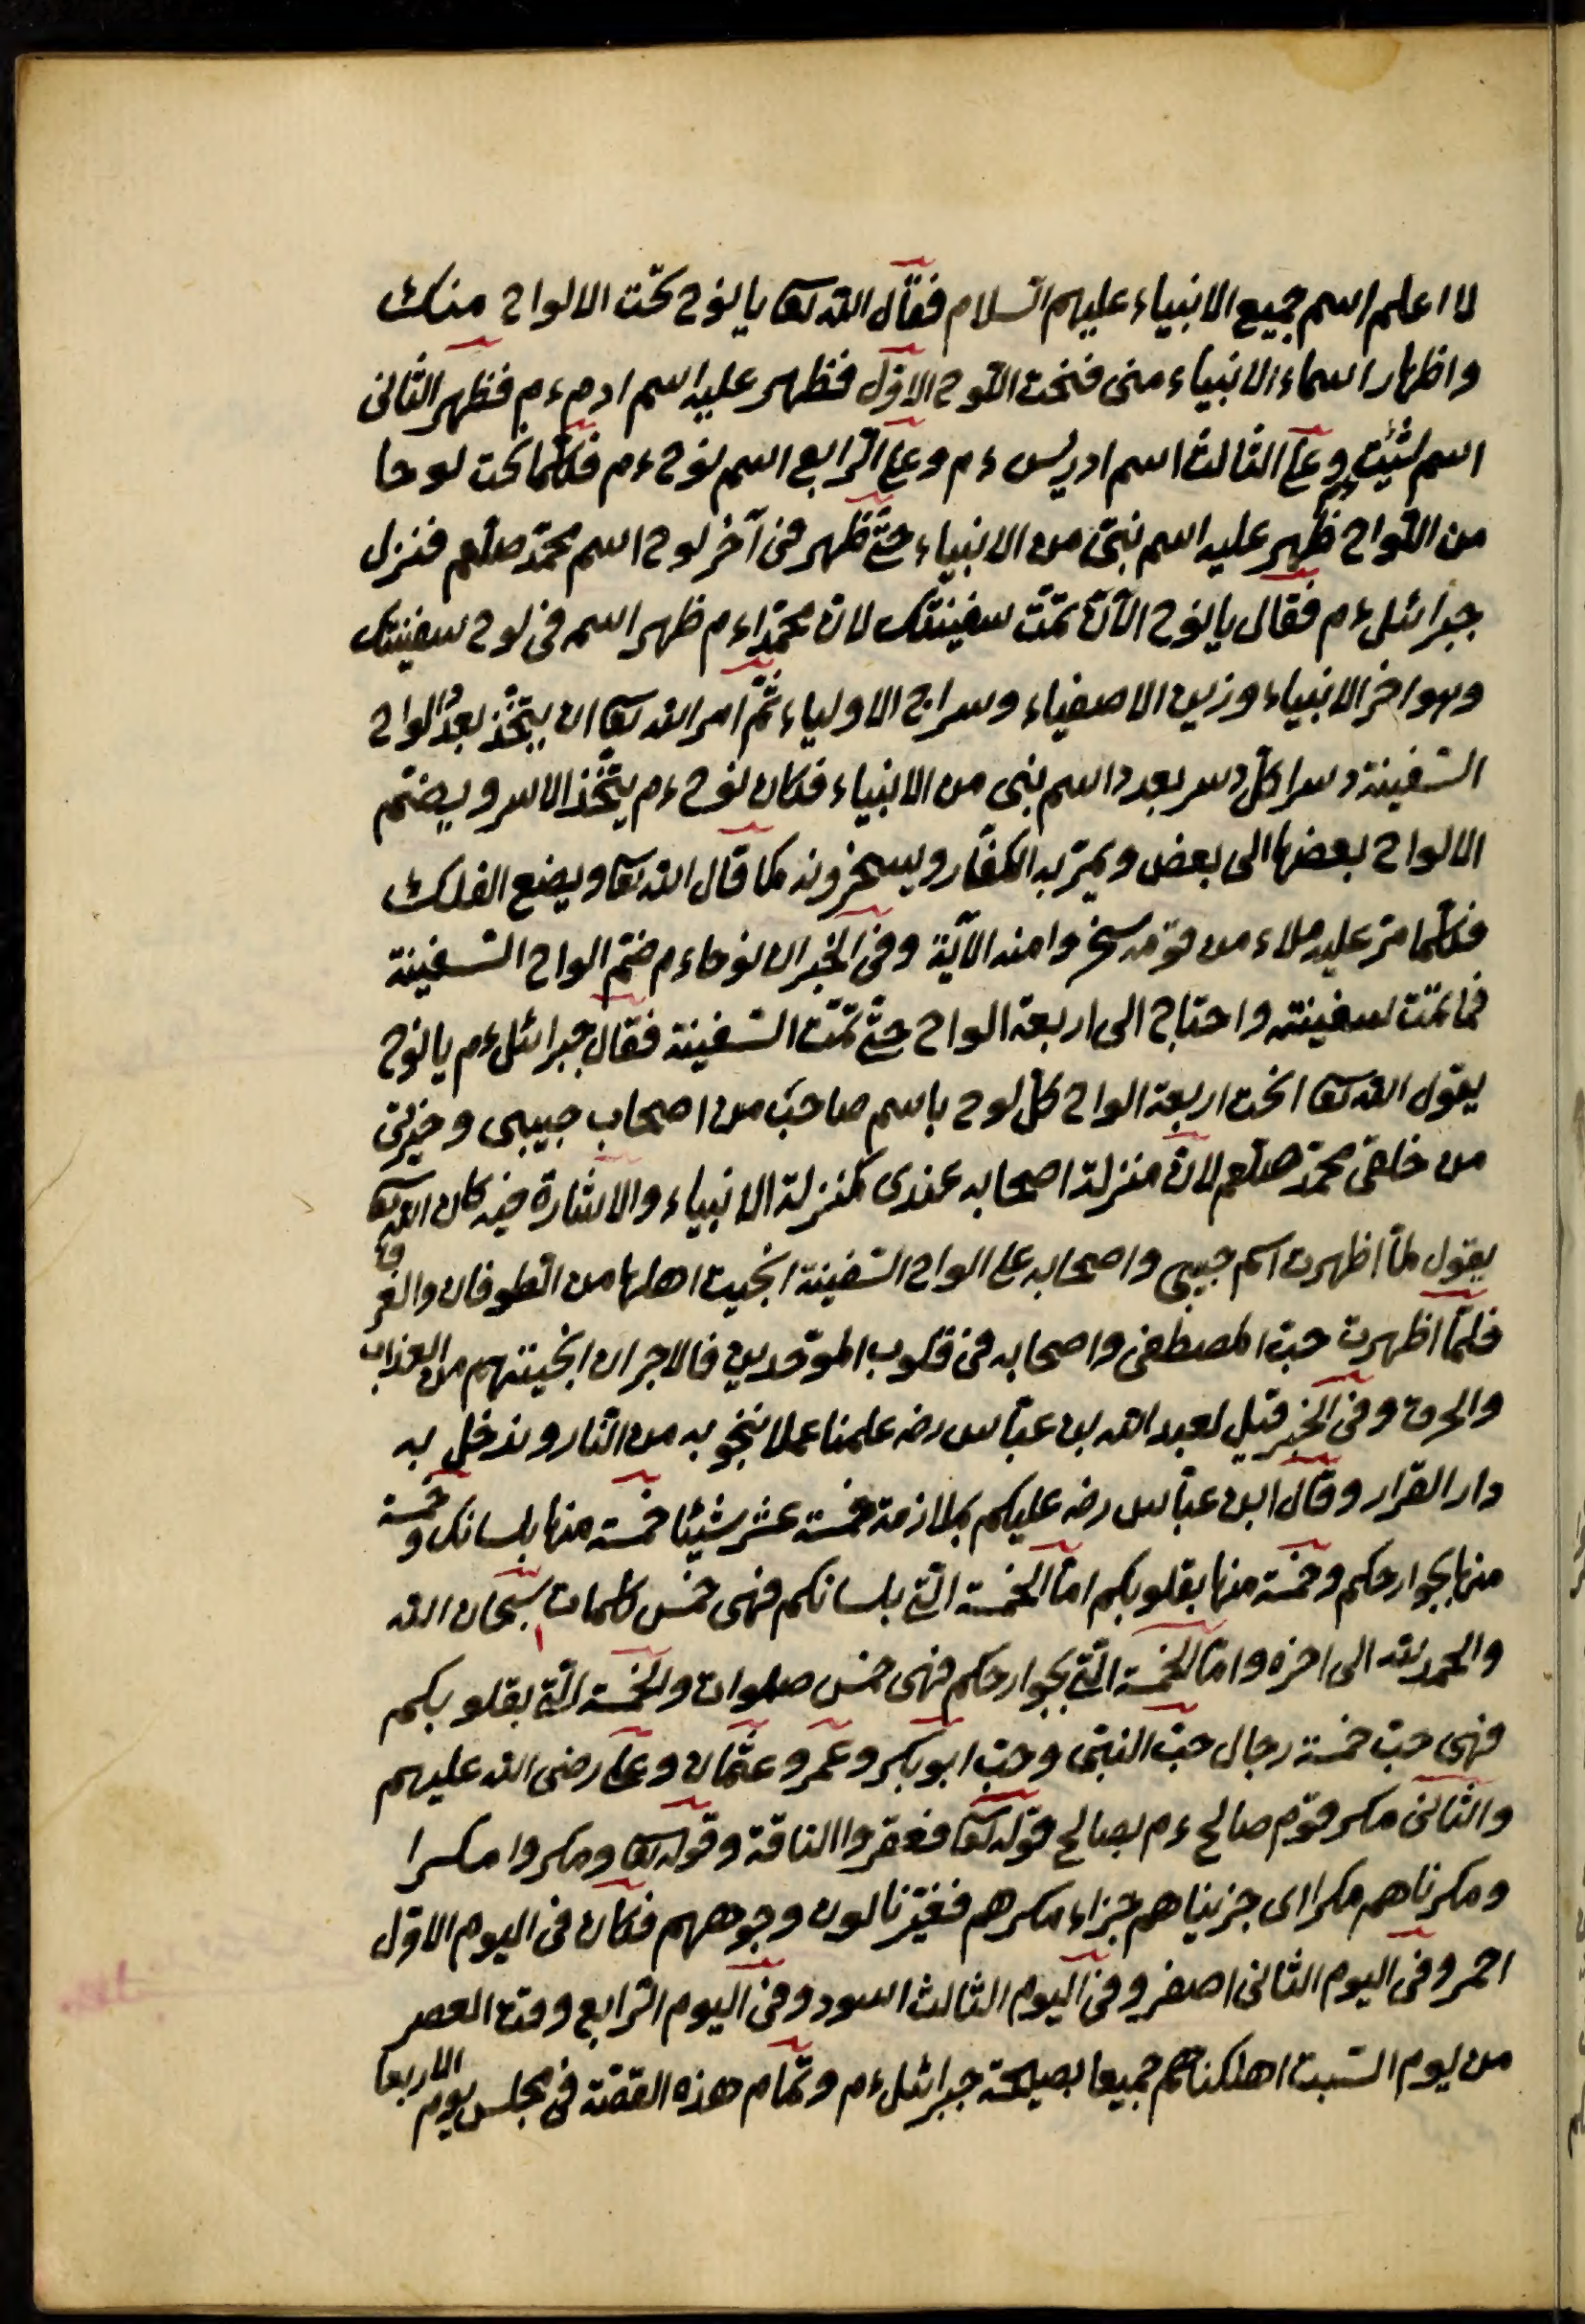 لا اعلم اسم جميع الانبياء عليهم السلام فقال الله تعا يا نوح نحت الالواح منك
واظهار اسماء الانبياء منى فنحت اللوح الاول فظهر عليه اسم ادم ءم فظهر الثانى
اسم شئيث وعلى الثالث اسم ادريس ءم وعلى الرابع اسم نوح ءم فكلما نحت لوحا
من اللواح ظهر عليه اسم نبى من الانبياء حتى ظهر فى آخر لوح اسم محمد صلعم فنزل
جبرائل ءم فقال يا نوح الآن تمت سفينتك لان محمدا ءم ظهر اسمه فى لوح سفينتك
وهو اخر الانبياء وزين الاصفياء وسراج الاولياء ثم امر الله تعا ان يتخذ بعد الواح
السفينة دسرا كل دسر بعدد اسم نبى من الانبياء فكان نوح ءم يتخذ الاسر ويضم
الالواح بعضها الى بعض ويمر به الكفار ويسخرونه كما قال الله تعا ويصنع الفلك
فكلما مر عليه ملاء من قومه سخروا منه الآية وفى الخبر ان نوحا ءم ضم الواح السفينة
فما تمت سفينته واحتاج الى اربعة الواح حتى تمت السفينة فقال جبرائل ءم يا نوح
يقول الله تعا انحت اربعة الواح كل لوح باسم صاحب من اصحاب حبيبى وخيرتى
من خلقى محمد صلعم لان منزلة اصحابه عندى كمنزلة الانبياء والاشارة فيه كان الله تعا
يقول لما اظهرت اسم حبيبى واصحابه على الواح السفينة انجيت اهلها من الطوفان والغرق
فلما اظهرت حب المصطفى واصحابه فى قلوب الموحدين فالاجر ان انجيتهم من العذاب
والحرق وفى الخبر قيل لعبد الله بن عباس رضه علمنا عملا ننجو به من النار وندخل به
دار القرار وقال ابن عباس رضه عليكم بملازمة خمسة عشر شيئا خمسة منها بلسانكم وخمسة
منها بجوارحكم وخمسة منها بقلوبكم اما الخمسة التى بلسانكم فهى خمس كلمات سبحان الله
والحمد لله الى اخره واما الخمسة التى بجوارحكم فهى خمس صلوات والخمسة التى بقلوبكم
فهى حب خمسة رجال حب النبى وحب ابوبكر وعمر وعثمان وعلى رضى الله عليهم
والثانى مكر قوم صالح ءم بصالح قوله تعا فعقروا الناقة وقوله تعا ومكروا مكرا
ومكرناهم مكرا اى جزيناهم جزاء مكرهم فغيرنا لون وجوههم فكان فى اليوم الاول
احمر وفى اليوم الثانى اصفر وفى اليوم الثالث اسود وفى اليوم الرابع وقت العصر
من يوم السبت اهلكناهم جميعا بصيحة جبرائل ءم وتمام هذه القصة فى مجلس يوم الاربعا